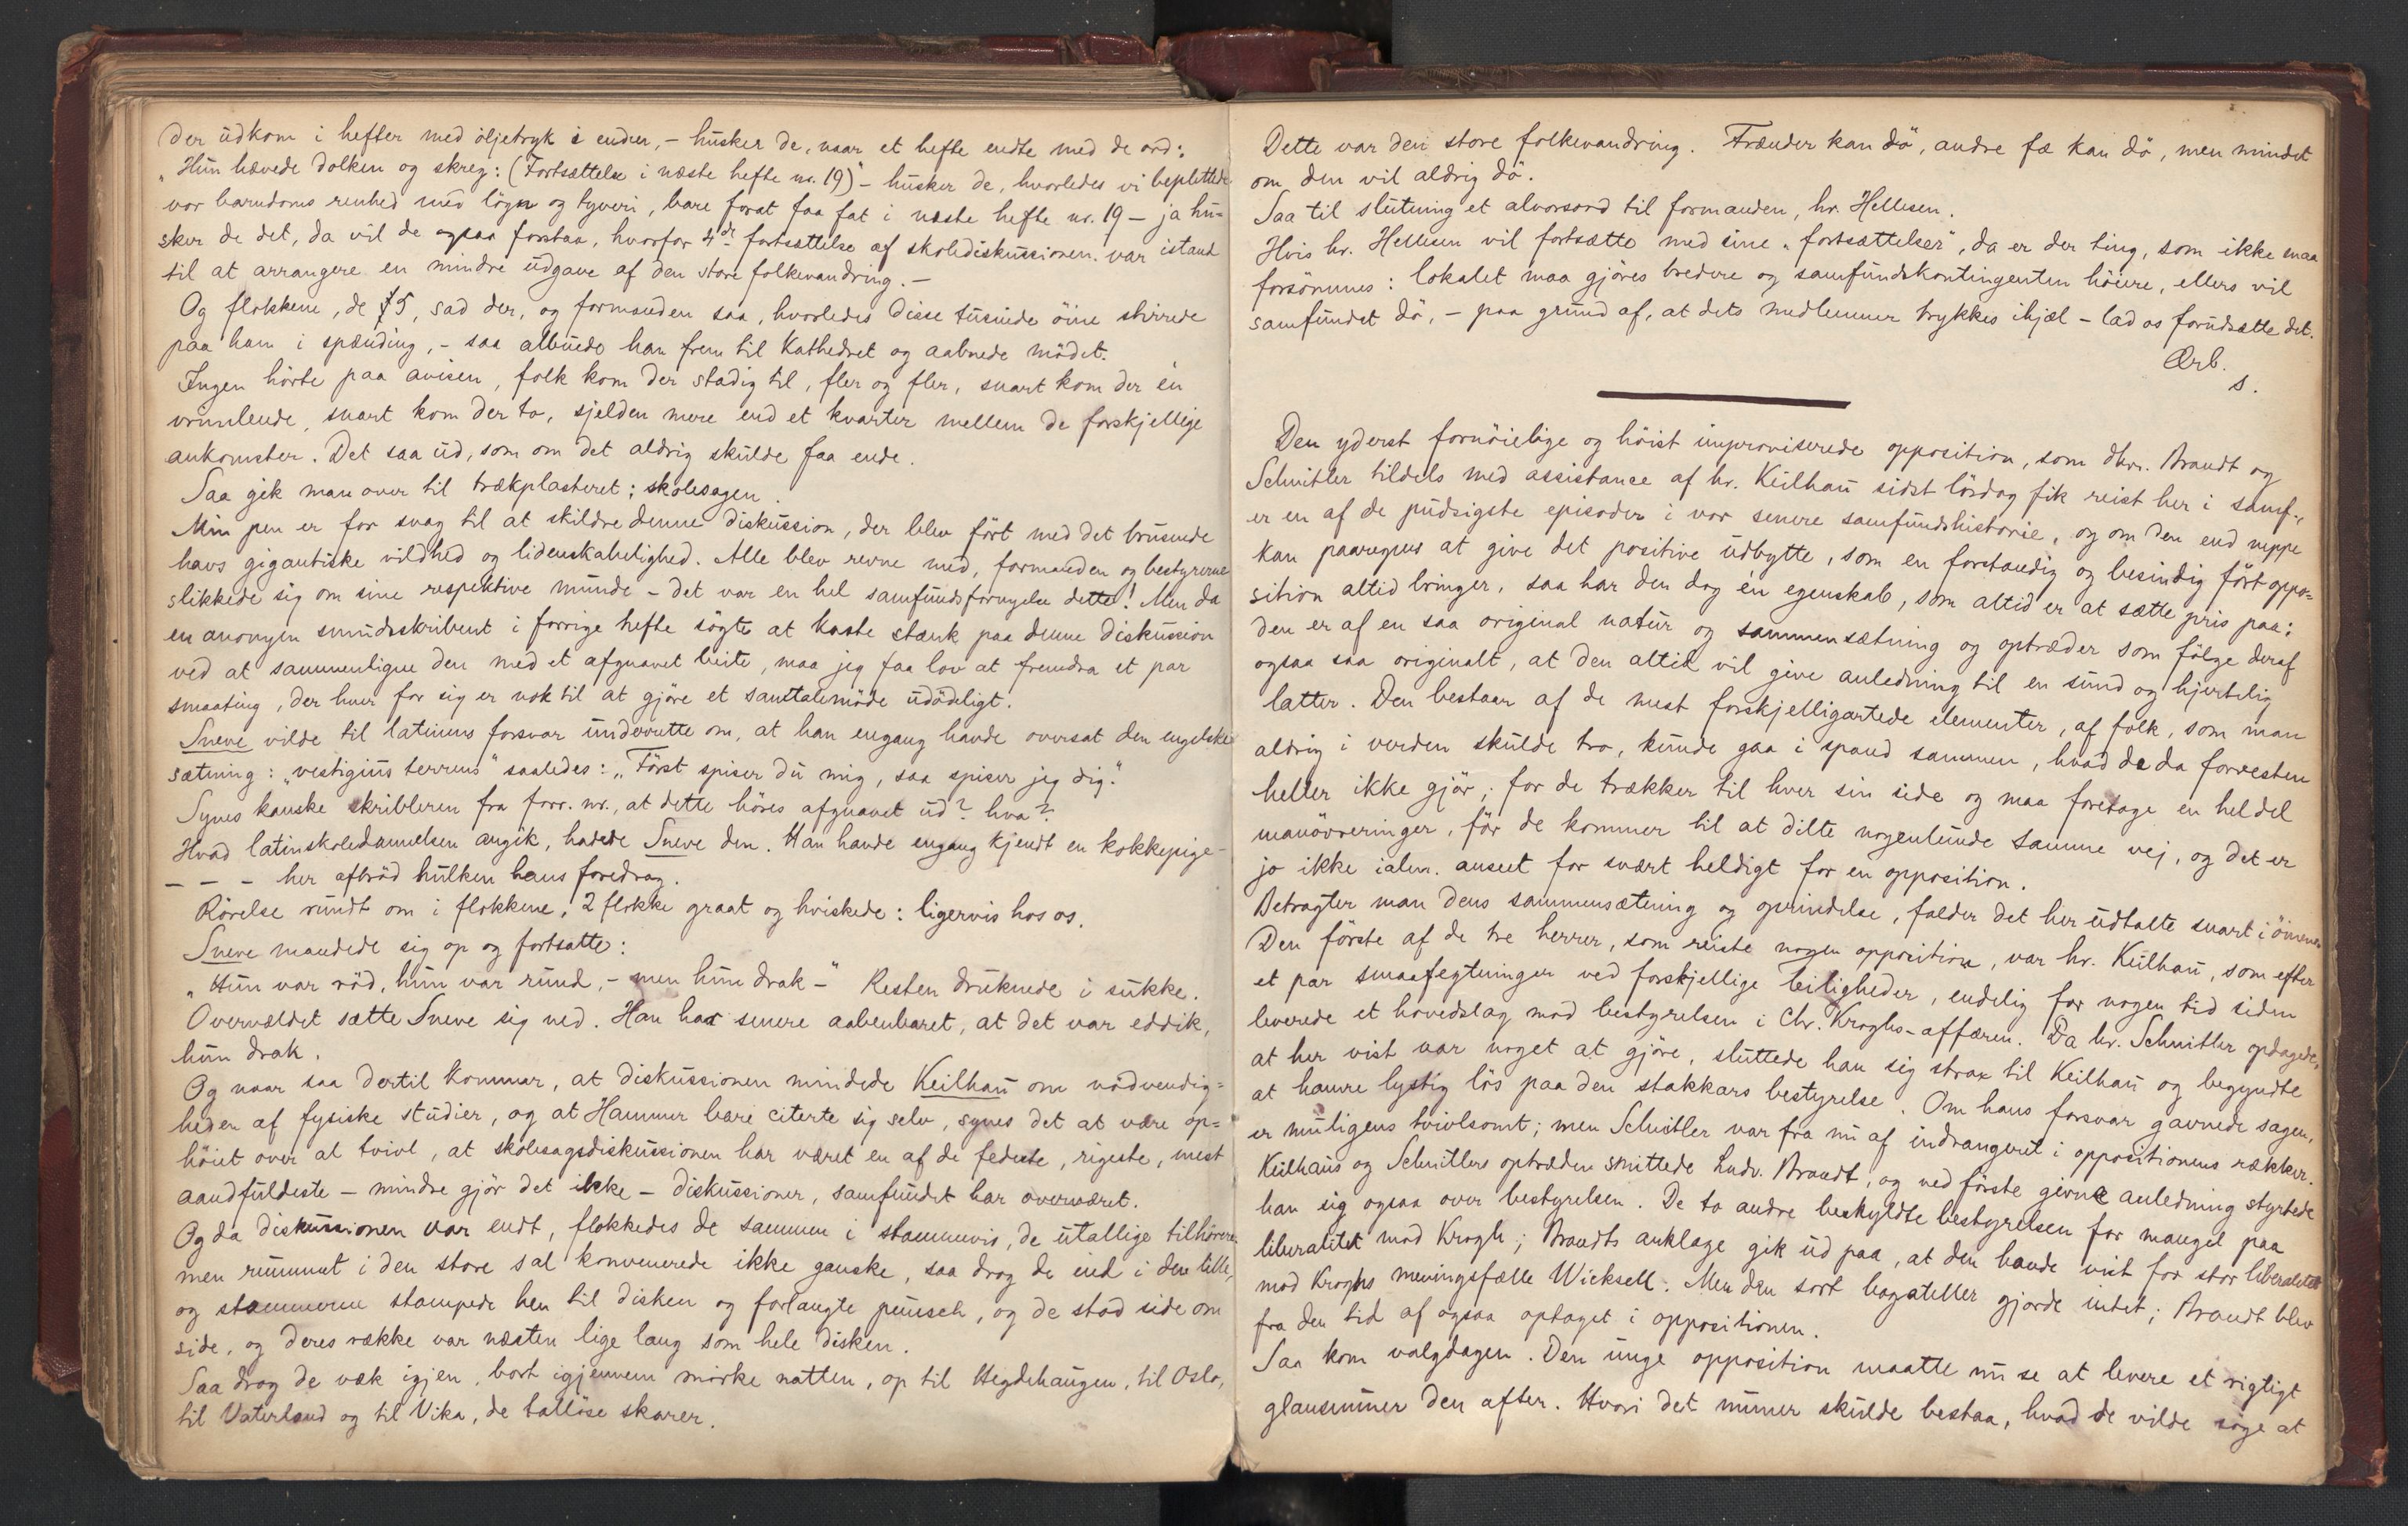 der udkom i hefter med oljetryk i enden, – husker de, naar et hefte endte med de ord:
"Hun hævede dolken og skreg: (Fortsættelse i næste hefte nr. 19)" – husker de, hvorledes vi beplettede
vor barndoms renhed med løgn og tyveri, bare forat faa fat i næste hefte nr. 19 – ja hu=
sker de det, da vil de ogsaa forstaa, hvorfor 4de fortsættelse af skolediskussionen var istand
til at arrangere en mindre udgave af den store folkevandring. –
Og flokkene, de 75, sad der, og formanden saa, hvorledes disse tusinde öine stirrede
paa ham i spænding, – saa albuede han frem til Kathedret og aabnede mödet.
Ingen hörte paa avisen, folk kom der stadig til, fler og fler, snart kom der én
vrimlende, snart kom der to, sjelden mere end et kvarter mellem de forskjellige
ankomster. Det saa ud, som om det aldrig skulde faa ende.
Saa gik man over til trækplasteret: skolesagen.
Min pen er for svag til at skildre denne diskussion, der blev fört med det brusende
havs gigantiske vildhed og lidenskabelighed. Alle blev revne med, formanden og bestyrerne
slikkede sig om sine respektive munde – det var en hel samfundsfornyelse dette! Men da
en anonym smudsskribent i forrige hefte sögte at kaste stænk paa denne diskussion
ved at sammenligne den med et afgnavet beite, maa jeg faa lov at fremdra et par
smaating, der hver for sig er nok til at gjöre et samtalemöde udödeligt.
Sneve vilde til latinens forsvar underrette om, at han engang havde oversat den engelske
sætning: "vestigius terrens" saaledes: "Först spiser du mig, saa spiser jeg dig."
Synes kanske skribleren fra forr. nr., at dette höres afgnavet ud? hva?
Hvad latinskoledannelsen angik, hadede Sneve den. Han havde engang kjendt en kokkepige –
– – – her afbröd hulken hans foredrag.
Rörelse rundt om i flokkene, 2 flokke graat og hviskede: ligervis hos os.
Sneve mandede sig op og fortsatte:
"Hun var röd, hun var rund, – men hun drak –" Resten druknede i sukke.
Overvældet satte Sneve sig ned. Han har senere aabenbaret, at det var eddik,
hun drak.
Og naar saa dertil kommer, at diskussionen mindede Keilhau om nödvendig=
heden af fysiske studier, og at Hammer bare citerte sig selv, synes det at være op=
höiet over al tvivl, at skolesagsdiskussionen har været en af de fedeste, rigeste, mest
aandfuldeste – mindre gjör det ikke – diskussioner, samfundet har overværet.
Og da diskussionen var endt, flokkedes de sammen i stammevis, de utallige tilhörere
men rummet i den store sal konvenerede ikke ganske, saa drog de ind i den lille,
og stammerne stampede hen til disken og forlangte punsch, og de stod side om
side, og deres række var næsten lige lang som hele disken.
Saa drog de væk igjen, bort igjennem mörke natten, op til Hegdehaugen, til Oslo,
til Vaterland og til Vika, de talløse skarer.
Dette var den store folkevandring. Frænder kan dö, andre fæ kan dö, men mindet
om den vil aldrig dö.
Saa til slutning et alvorsord til formanden, hr. Hellesen.
Hvis hr. Hellesen vil fortsætte med sine "fortsættelser", da er der ting, som ikke maa
forsömmes: lokalet maa gjöres bredere og samfundskontingenten höiere, ellers vil
samfundet dö, – paa grund af, at dets medlemmer trykkes ihjæl – lad os forudsætte det.
Ærb.
s.
Den yderst fornöielige og höist improviserede opposition, som dhrr. Brandt og
Schnitler tildels med assistance af hr. Keilhau sidst lördag fik reist her i samf.,
er en af de pudsigste episoder i vor senere samfundshistorie, og om den end neppe
kan paaregnes at give det positive udbytte, som en forstandig og besindig fört oppo=
sition altid bringer, saa har den dog én egenskab, som altid er at sætte pris paa:
den er af en saa original natur og sammensætning og optræder som fölge deraf
ogsaa saa originalt, at den altid vil give anledning til en sund og hjertelig
latter. Den bestaar af de mest forskjelligartede elementer, af folk, som man
aldrig i verden skulde tro, kunde gaa i spand sammen, hvad de da forresten
heller ikke gjör; for de trækker til hver sin side og maa foretage en hel del
manövreringer, för de kommer til at dilte nogenlunde samme vej, og det er
jo ikke ialm. anseet for svært heldigt for en opposition.
Betragter man dens sammensætning og oprindelse, falder det her udtalte snart i öinene
Den förste af de tre herrer, som reiste nogen opposition, var hr. Keilhau, som efter
et par smaafegtninger ved forskjellige leiligheder, endelig for nogen tid siden
leverede et hovedslag mod bestyrelsen i Chr. Kroghs-affæren. Da hr. Schnitler opdagede,
at her vist var noget at gjöre, sluttede han sig strax til Keilhau og begyndte
at hamre lystig lös paa den stakkars bestyrelse. Om hans forsvar gavnede sagen,
er muligens tvivlsomt; men Schnitler var fra nu af indrangeret i oppositionens rækker.
Keilhaus og Schnitlers optræden smittede Ludv. Brandt, og ved förste givne anledning styrtede
han sig ogsaa over bestyrelsen. De to andre beskyldte bestyrelsen for mangel paa
liberalitet mod Krogh; Brandts anklage gik ud paa, at den havde vist for stor liberalitet
mod Kroghs meningsfælle Wicksell. Men den sort bagateller gjorde intet; Brandt blev
fra den tid af ogsaa optaget i oppositionen.
Saa kom valgdagen. Den unge opposition maatte nu se at levere et rigtigt
glansnumer den aften. Hvori det numer skulde bestaa, hvad de vilde söge at